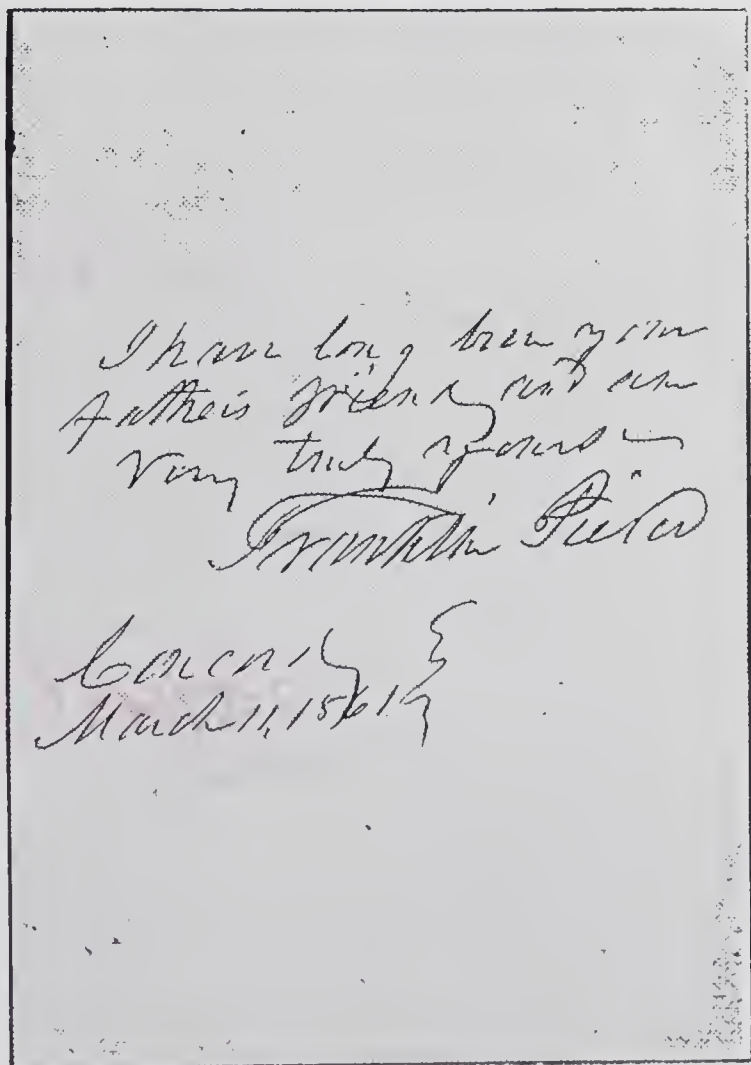 I have long been your
Father's friend, and am
Very truly yours
Franklin Pierce
Concord,
March 11, 1861